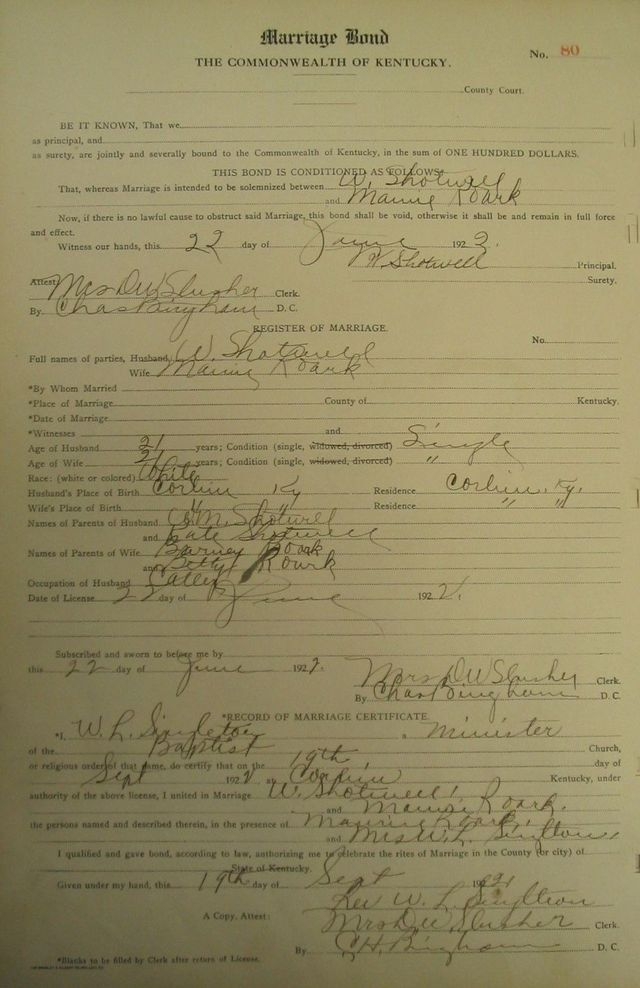 Marriage Bond
No. 80
THE COMMONWEALTH OF KENTUCKY.
County Court.
BE IT KNOWN, That we
as principal, and
as surety, are jointly and severally bound to the Commonwealth of Kentucky, in the sum of ONE HUNDRED DOLLARS.
THIS BOND IS CONDITIONED AS FOLLOWS:
That, whereas Marriage is intended to be solemnized between W. Shotwell
and Mamie Roark
Now, if there is no lawful cause to obstruct said Marriage, this bond shall be void, otherwise it shall be and remain in full force
and effect.
Witness our hands, this 22 day of June 1922.
W. Shotwell Principal.
Surety.
Attest: Mrs D W Slusher Clerk.
By Chas Bingham D. C.
REGISTER OF MARRIAGE.
No.
Full names of parties, Husband, W. Shotwell
Wife Mamie Roark
*By Whom Married
*Place of Marriage County of Kentucky.
*Date of Marriage
*Witnesses and
Age of Husband 21 years; Condition (single, widowed, divorced) Single
Age of Wife 21 years; Condition (single, widowed, divorced) "
Race: (white or colored) White
Husband's Place of Birth Corbin Ky Residence Corbin, Ky.
Wife's Place of Birth " " Residence " "
Names of Parents of Husband M. Shotwell
and Kate Shotwell
Names of Parents of Wife Barney Roark
and Betty Roark
Occupation of Husband
Date of License 22 day of June 1922.
Subscribed and sworn to before me by
this 22 day of June 1922.
Mrs D W Slusher Clerk.
By Chas Bingham D. C.
*RECORD OF MARRIAGE CERTIFICATE.
*I, W. L. Singleton, a Minister
of the Baptist Church,
or religious order of that name, do certify that on the 19th day of
Sept 1922 at Corbin Kentucky, under
authority of the above license, I united in Marriage W. Shotwell
and Mamie Roark.
the persons named and described therein, in the presence of Roark
and Mrs W. L.
I qualified and gave bond, according to law, authorizing me to celebrate the rites of Marriage in the County (or city) of
State of Kentucky.
Given under my hand, this 19th day of Sept
Rev W. L.
A Copy, Attest: Mrs D W Slusher Clerk.
By C. H. Bingham D. C.
*Blanks to be filled by Clerk after return of License.